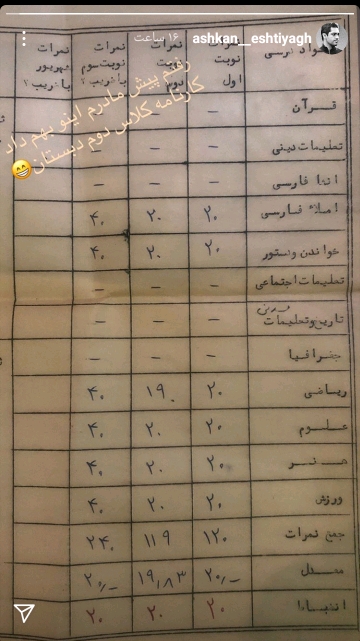 ashkan__eshtiyagh ۱۶ ساعت
مواد درسی | نمرات نوبت اول | نمرات نوبت دوم | نمرات نوبت سوم با ضریب ۲ | نمرات شهریور با ضریب ۲
رفتم پیش مادرم اینو بهم داد
کارنامه کلاس دوم دبستان😁
قرآن – – –
تعلیمات دینی – – –
انشا فارسی – – –
املاء فارسی ۲۰ ۲۰ ۴۰
خواندن و دستور ۲۰ ۲۰ ۴۰
تعلیمات اجتماعی – – –
تاریخ و تعلیمات مدنی – – –
جغرافیا – – –
ریاضی ۲۰ ۱۹ ۴۰
علوم ۲۰ ۲۰ ۴۰
هنر ۲۰ ۲۰ ۴۰
ورزش ۲۰ ۲۰ ۴۰
جمع نمرات ۱۲۰ ۱۱۹ ۲۴۰
معدل ۲۰/– ۱۹/۸۳ ۲۰/–
انضباط ۲۰ ۲۰ ۲۰